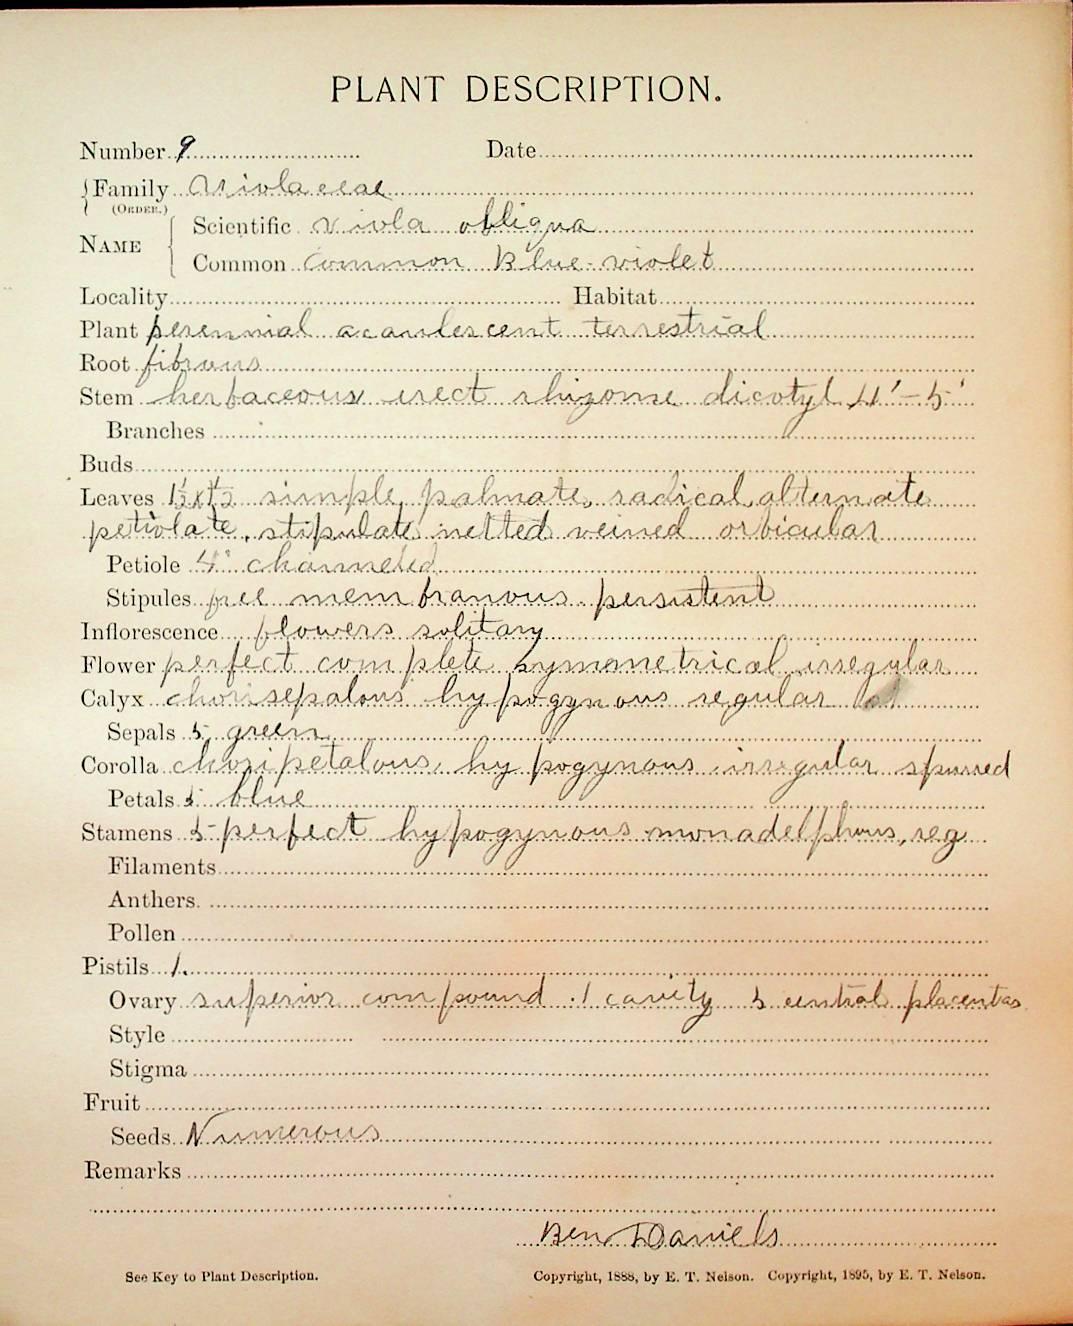 PLANT DESCRIPTION.
Number 9 Date
Family Violaceae
(ORDER.)
Scientific Viola obliqua
NAME
Common Common Blue-violet
Locality Habitat
Plant perennial acaulescent terrestrial
Root fibrous
Stem herbaceous erect rhizome dicotyl 4' - 5'
Branches
Buds
Leaves simple, palmate, radical, alternate
petiolate, stipulate netted veined orbicular
Petiole 4" channeled
Stipules free membranous persistent
Inflorescence flowers solitary
Flower perfect complete symmetrical irregular
Calyx chorisepalous hypogynous regular
Sepals 5 green
Corolla choripetalous, hypogynous irregular spurred
Petals 5 blue
Stamens 5-perfect hypogynous monadelphous, reg
Filaments
Anthers
Pollen
Pistils 1.
Ovary superior compound 1 cavity 3 central placentas
Style
Stigma
Fruit
Seeds Numerous
Remarks
Ben Daniels
See Key to Plant Description. Copyright, 1888, by E. T. Nelson. Copyright, 1895, by E. T. Nelson.